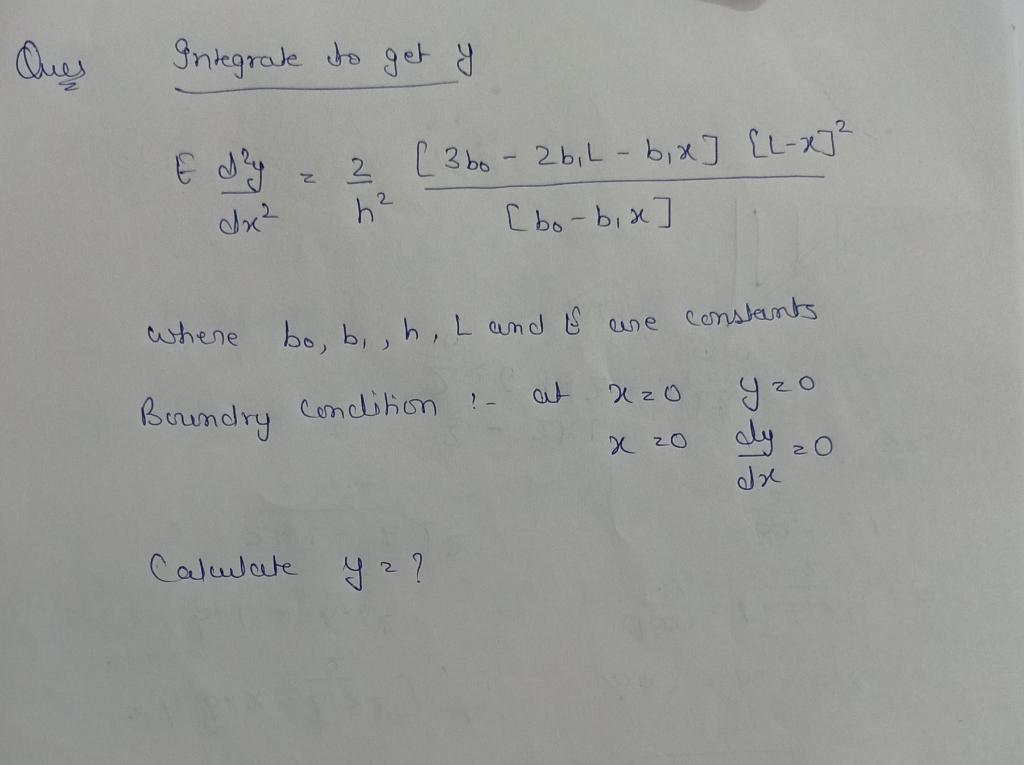 Ques Integrate to get y
E d²y/dx² = 2/h² [3b₀ - 2b₁L - b₁x] [L-x]² / [b₀ - b₁x]
where b₀, b₁, h, L and E are constants
Boundry Condition :- at x=0 y=0
x=0 dy/dx=0
Calculate y=?